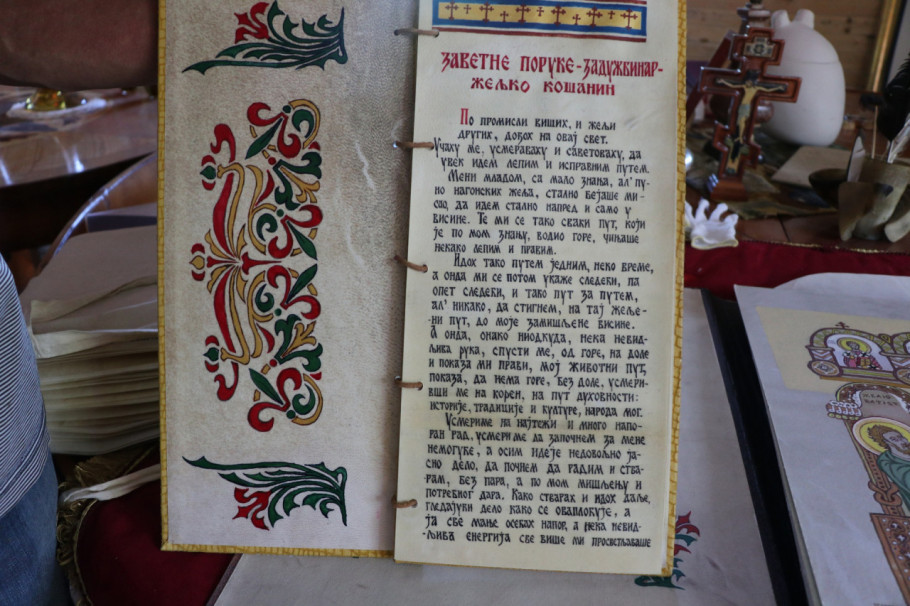 ЗАВЕТНЕ ПОРУКЕ-ЗАДУЖБИНАР-
ЖЕЉКО КОШАНИН
По промисли виших, и жељи
других, дођох на овај свет.
Учаху ме, усмераваху и саветоваху, да
увек идем лепим и исправним путем.
Мени младом, са мало знања, ал' пу-
но нагонских жеља, стално бејаше ми-
сао, да идем стално напред и само у
висине. Те ми се тако сваки пут, који
је по мом знању, водио горе, чињаше
некако лепим и правим.
Идох тако путем једним, неко време,
а онда ми се потом укаже следећи, па
опет следећи, и тако пут за путем,
ал' никако, да стигнем, на тај жеље-
ни пут, до моје замишљене висине.
А онда, онако ниодкуда, нека невид-
љива рука, спусти ме, од горе, на доле
и показа ми прави, мој животни пут,
показа, да нема горе, без доле, усмери-
вши ме на корен, на пут духовности:
историје, традиције и културе, народа мог.
Усмериме на најтежи и много напо-
ран рад, усмери ме да започнем за мене
немогуће, а осим идеје недовољно ја-
сно дело, да почнем да радим и ства-
рам, без пара, а по мом мишљењу и
потребног дара. Како стварах и идох даље,
гледајући дело како се оваплоћује, а
ја све мање осећах напор, а нека невид-
љивъ енергија све више ми просветљаваше